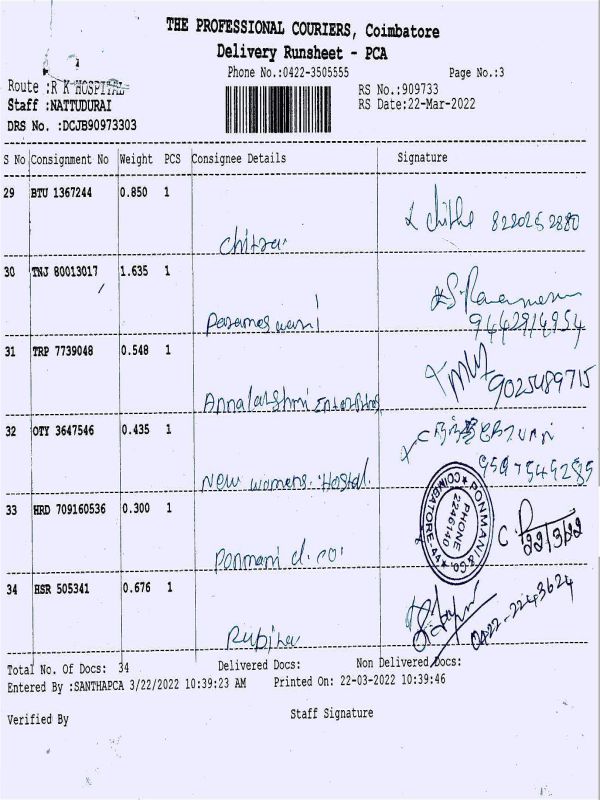 THE PROFESSIONAL COURIERS, Coimbatore
Delivery Runsheet - PCA
Phone No.:0422-3505555 Page No.:3
Route :R K HOSPITAL RS No.:909733
Staff :NATTUDURAI RS Date:22-Mar-2022
DRS No. :DCJB90973303
S No Consignment No Weight PCS Consignee Details Signature
29 BTU 1367244 0.850 1
Chitra 8220252880
30 TNJ 80013017 1.635 1
Parameswari 9442914954
31 TRP 7739048 0.548 1
Annalakshmi Enterprises 9025489715
32 OTY 3647546 0.435 1
New womens Hostal 9597549285
33 HRD 709160536 0.300 1
Ponmani & co. 22/3/22
PONMANI & CO. COIMBATORE-44
PHONE
2246140
34 HSR 505341 0.676 1
Rubina 0422-2243624
Total No. Of Docs: 34 Delivered Docs: Non Delivered Docs:
Entered By :SANTHAPCA 3/22/2022 10:39:23 AM Printed On: 22-03-2022 10:39:46
Verified By Staff Signature